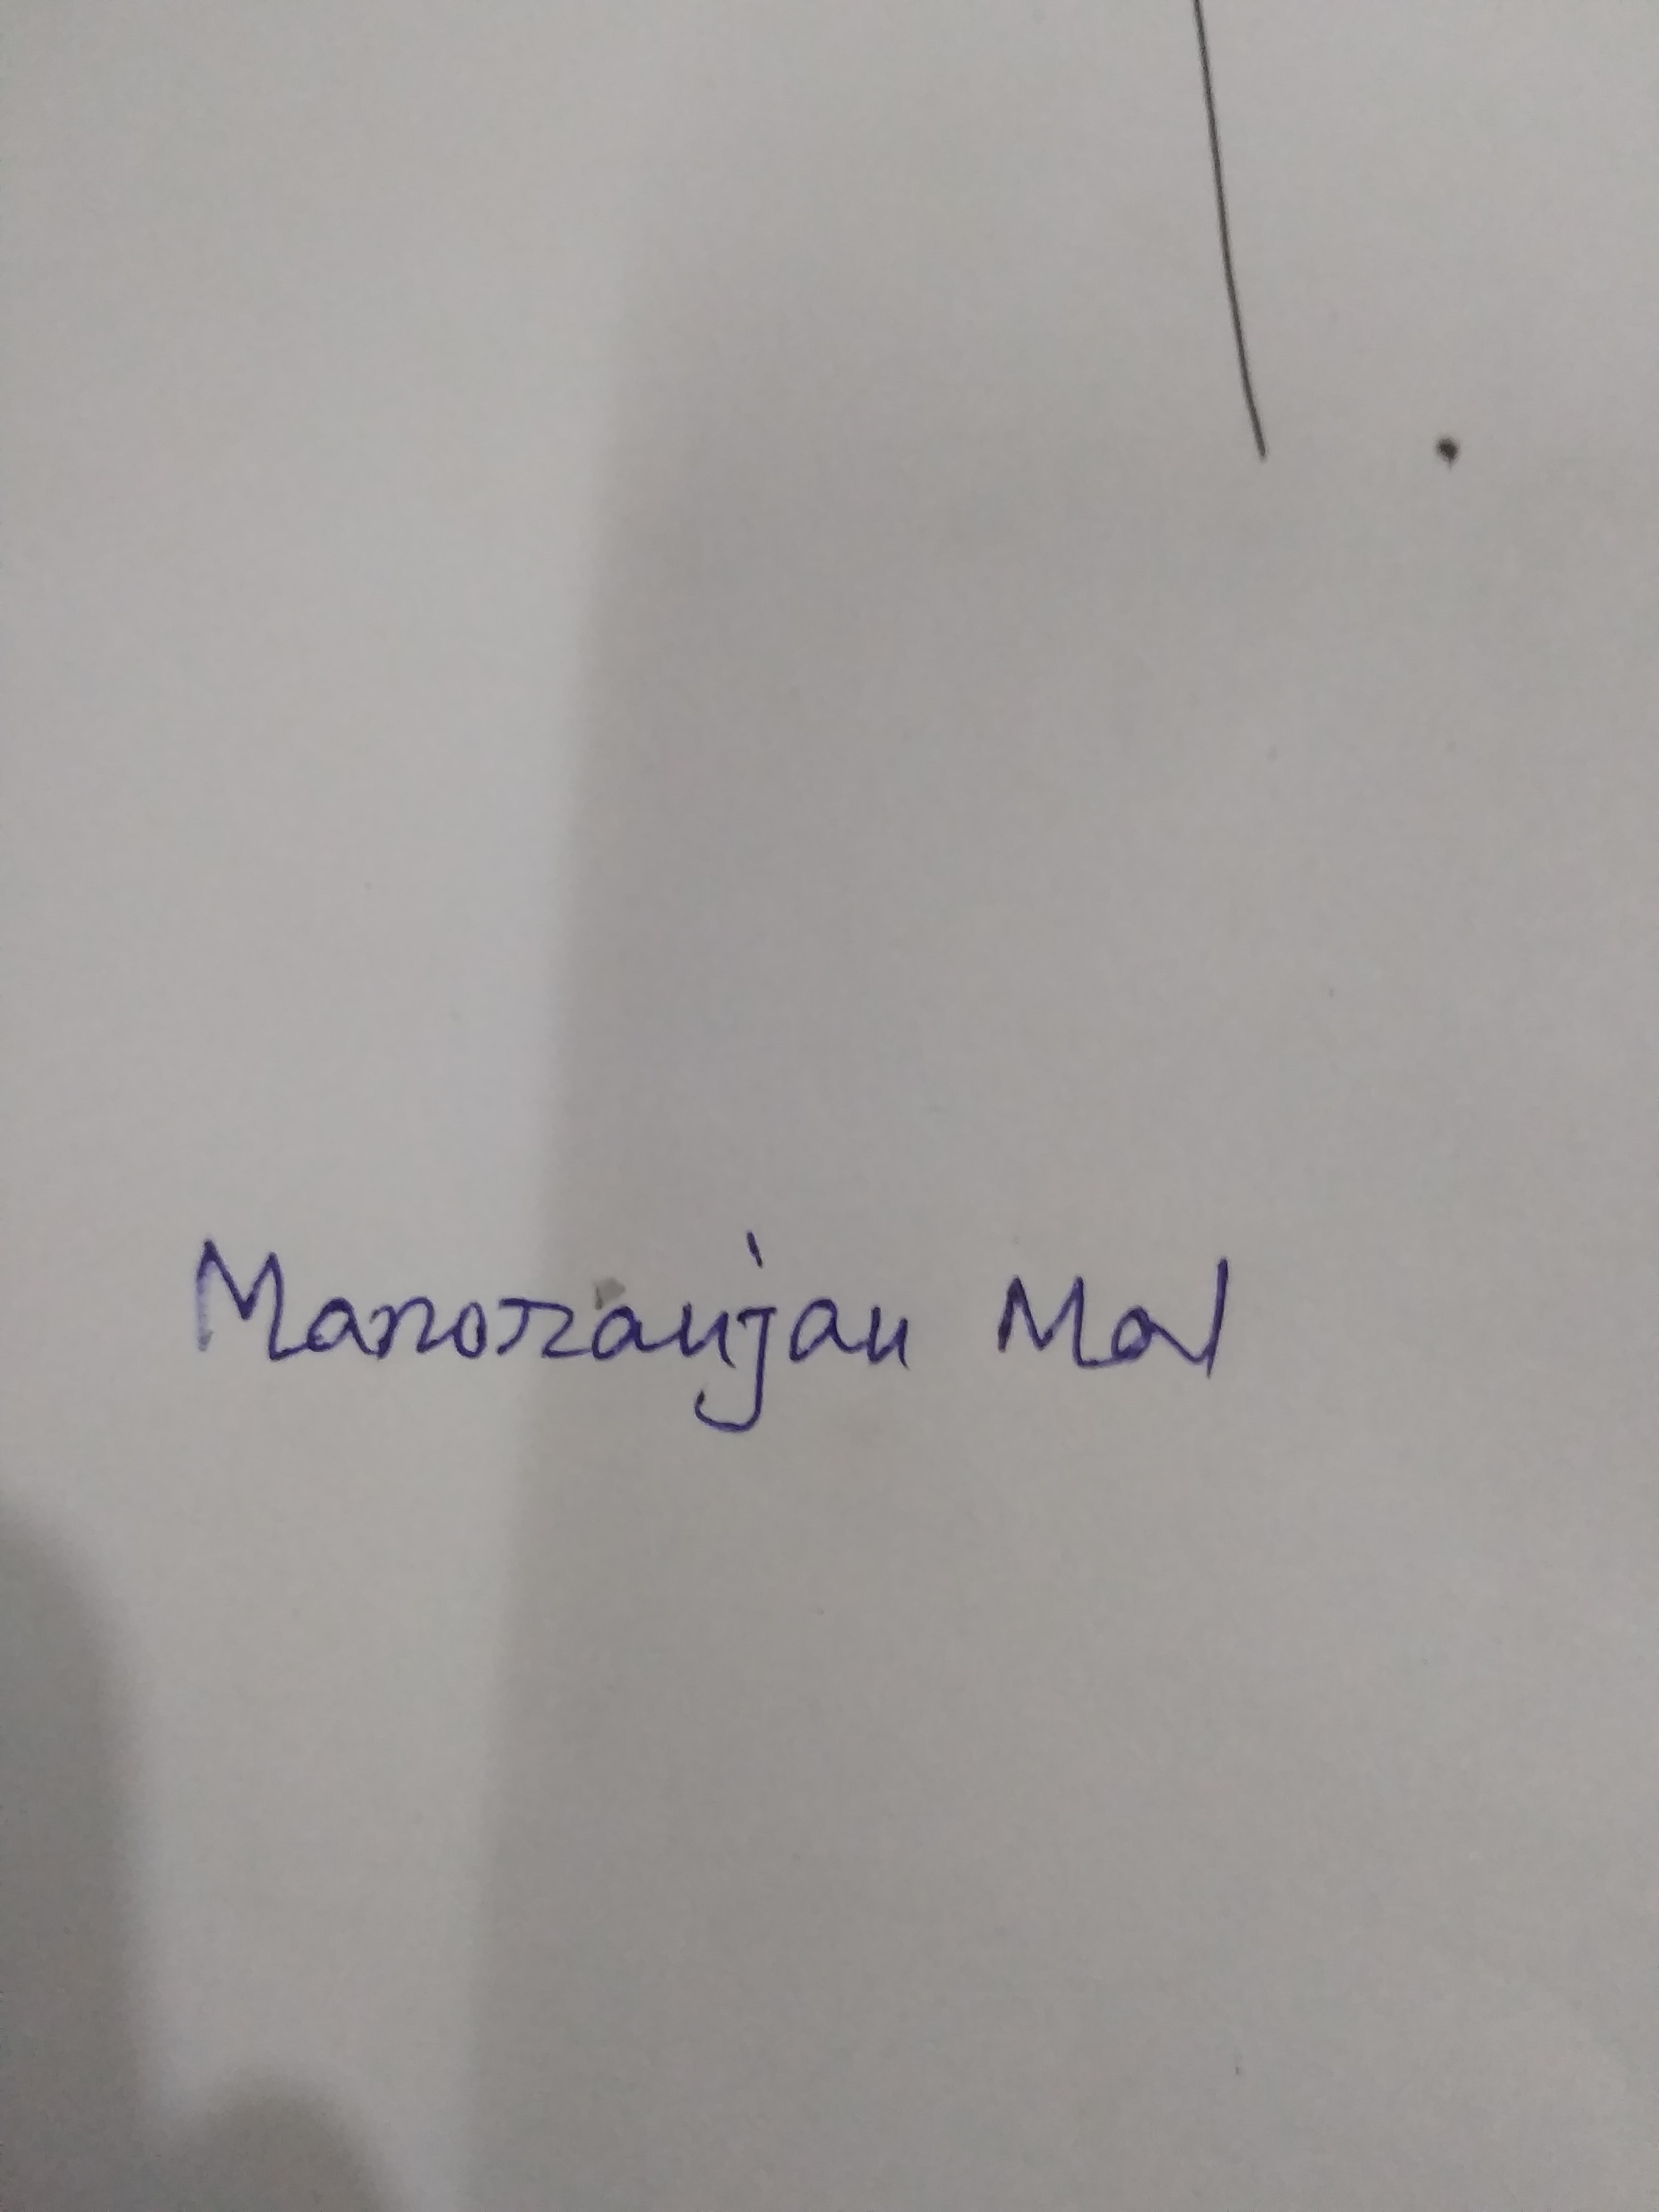 Manoranjan Mal